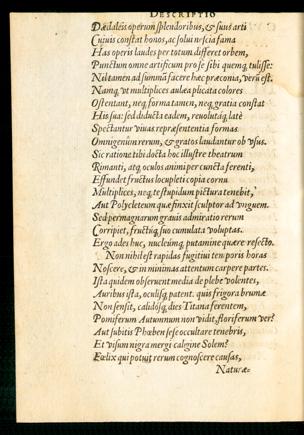 DESCRIPTIO
Dædaleis operum splendoribus, & suus arti
Cuiuis constat honos, ac solui nescia fama
Has operis laudes per totum differet orbem,
Punctum omne artificum pro se sibi quemq; tulisse:
Nil tamen ad summã facere hæc præconia, verũ est.
Namq; vt multiplices aulæa plicata colores
Ostentant, neq; forma tamen, neq; gratia constat
His sua: sed diducta eadem, reuolutaq; latè
Spectantur viuas repræsententia formas
Omnigenûm rerum, & gratos laudantur ob vsus.
Sic ratione tibi docta hoc illustre theatrum
Rimanti, atq; oculos animi per cuncta ferenti,
Effundet fructus locupleti copia cornu
Multiplices, neq; te stupidum pictura tenebit,
Aut Polycleteum quæ finxit sculptor ad vnguem.
Sed permagnarum grauis admiratio rerum
Corripiet, fructusq; suo cumulata voluptas.
Ergo ades huc, nucleumq; putamine quære resecto.
Non nihil est rapidas fugitiui temporis horas
Noscere, & in minimas attentum carpere partes.
Ista quidem obseruent media de plebe volentes,
Auribus ista, oculisq; patent. quis frigora brumæ
Non sensit, calidosq; dies Titana ferentem,
Pomiferum Autumnum non vidit, floriferum ver?
Aut subitis Phœben sese occultare tenebris,
Et visum nigra mergi caligine Solem?
Fœlix qui potuit rerum cognoscere causas,
Naturæ